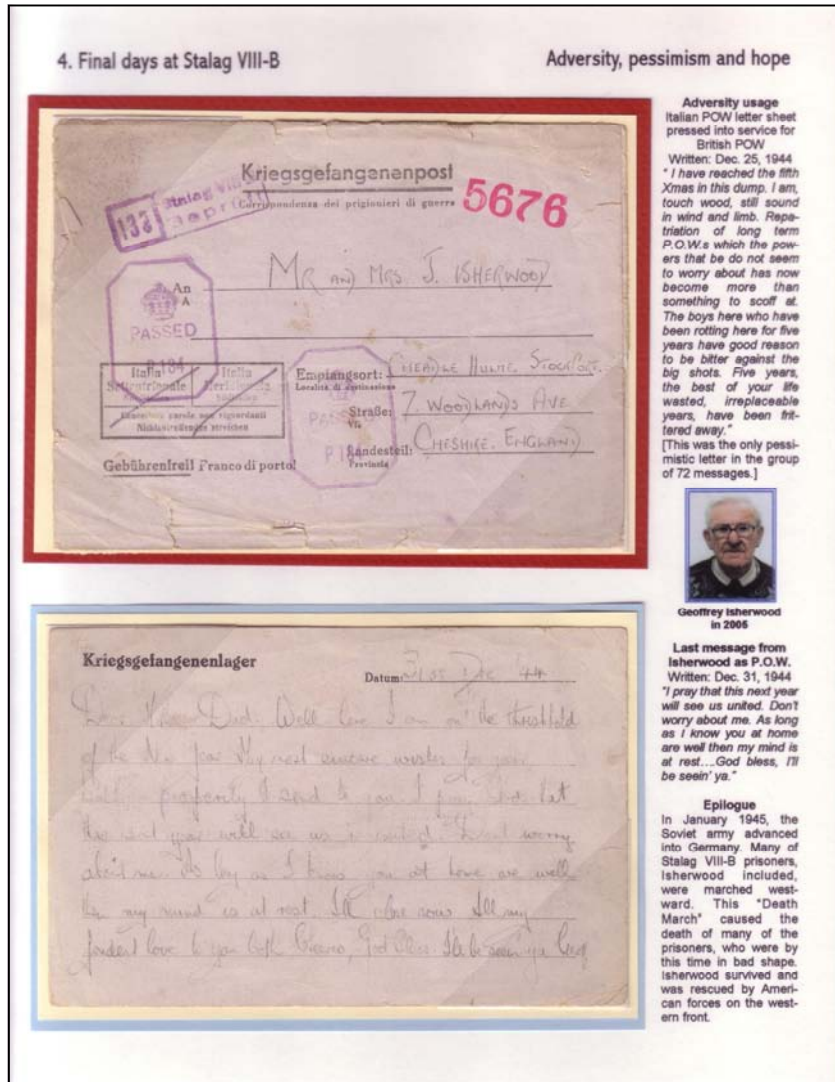 4. Final days at Stalag VIII-B
Adversity, pessimism and hope
Kriegsgefangenenpost
Corrispondenza dei prigionieri di guerra
5676
133
Stalag VIII
Geprüft
An
A
MR AND MRS J. ISHERWOOD
PASSED
P 184
Italia
Settentrionale
Italia
Meridionale
Cancellare parole non riguardanti
Nichtzutreffendes streichen
Empfangsort:
Località di destinazione
CHEADLE HULME. STOCKPORT.
PASSED
P 184
Straße:
Via
7. WOODLANDS AVE
Landesteil:
Provincia
CHESHIRE. ENGLAND
Gebührenfrei! Franco di porto!
Kriegsgefangenenlager
Datum: 31st Dec 44
Dear Mum & Dad. Well here I am on the threshold
of the New Year My most sincere wishes for your
prosperity I send to you. I pray that
this next year will see us united. Don't worry
about me. As long as I know you at home are well
then my mind is at rest. I'll close now All my
fondest love to you both Cheerio, God Bless. I'll be seein' ya
Adversity usage
Italian POW letter sheet
pressed into service for
British POW
Written: Dec. 25, 1944
" I have reached the fifth
Xmas in this dump. I am,
touch wood, still sound
in wind and limb. Repa-
triation of long term
P.O.W.s which the pow-
ers that be do not seem
to worry about has now
become more than
something to scoff at.
The boys here who have
been rotting here for five
years have good reason
to be bitter against the
big shots. Five years,
the best of your life
wasted, irreplaceable
years, have been frit-
tered away."
[This was the only pessi-
mistic letter in the group
of 72 messages.]
Geoffrey Isherwood
in 2005
Last message from
Isherwood as P.O.W.
Written: Dec. 31, 1944
"I pray that this next year
will see us united. Don't
worry about me. As long
as I know you at home
are well then my mind is
at rest....God bless, I'll
be seein' ya."
Epilogue
In January 1945, the
Soviet army advanced
into Germany. Many of
Stalag VIII-B prisoners,
Isherwood included,
were marched west-
ward. This "Death
March" caused the
death of many of the
prisoners, who were by
this time in bad shape.
Isherwood survived and
was rescued by Ameri-
can forces on the west-
ern front.